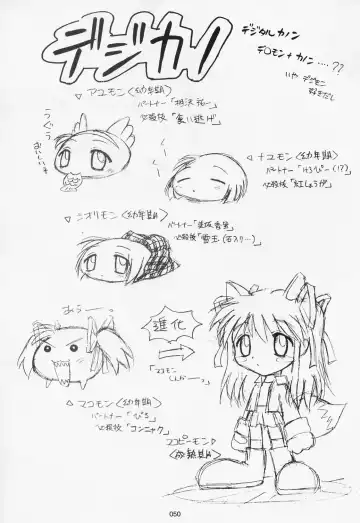 デジカノ
デジタル カノン
デジモン + カノン ‥‥??
いや デジモン
好きだし
▽ アユモン〈幼年期〉
パートナー「相沢祐一」
必殺技「食い逃げ」
うぐぅ
おいしいよ
く〜
▽ ナユモン〈幼年期〉
パートナー「けろぴー(!?)」
必殺技「紅しょうが」
▽ シオリモン〈幼年期〉
パートナー「美坂香里」
必殺技「雪玉(石入り…)」
あぅー
進化
「マコモン
しんかーっ」
マコモン〈幼年期〉
パートナー「ぴろ」
必殺技「コンニャク」
マコピーモン▽
〈成熟期〉
050